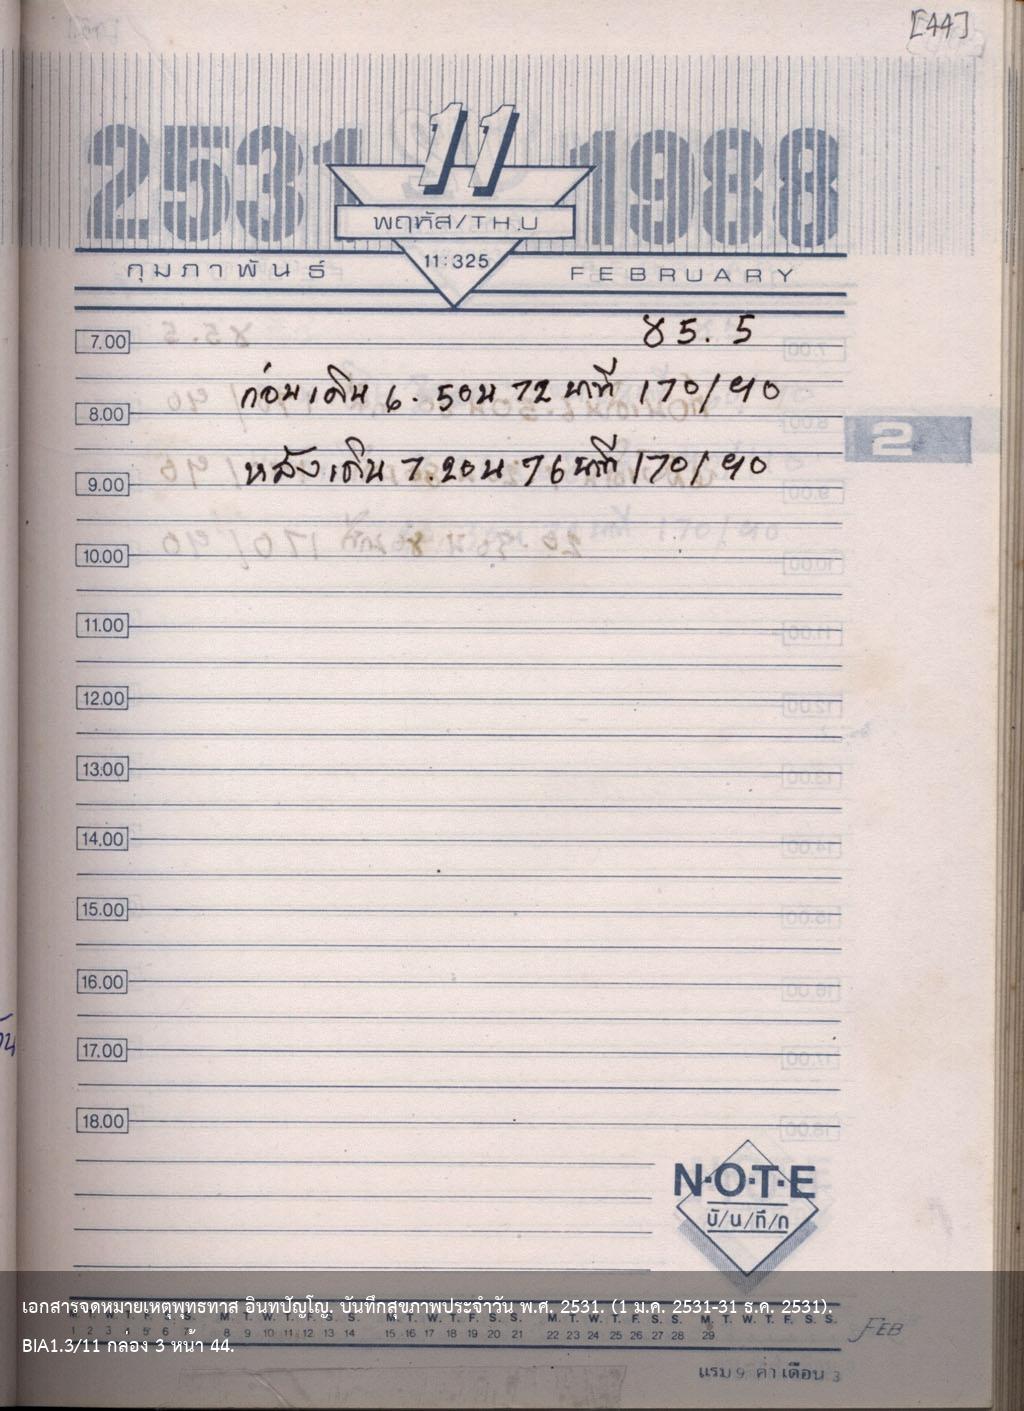 [44]
2531 11 1988
พฤหัส/T H.U
กุมภาพันธ์ 11:325 FEBRUARY
7.00 85.5
ก่อนเดิน 6.50น 72 นาที 170/90
8.00
2
หลังเดิน 7.20น 76 นาที 170/90
9.00
10.00
11.00
12.00
13.00
14.00
15.00
16.00
17.00
18.00
N·O·T·E
บั/น/ทึ/ก
เอกสารจดหมายเหตุพุทธทาส อินทปัญโญ. บันทึกสุขภาพประจำวัน พ.ศ. 2531. (1 ม.ค. 2531-31 ธ.ค. 2531).
M. T. W. T. F. S. S. M. T. W. T. F. S. S. M. T. W. T. F. S. S. M. T. W. T. F. S. S. M. T. W. T. F. S. S.
1 2 3 4 5 6 7 8 9 10 11 12 13 14 15 16 17 18 19 20 21 22 23 24 25 26 27 28 29
FEB
BIA1.3/11 กล่อง 3 หน้า 44.
แรม 9 ค่ำ เดือน 3